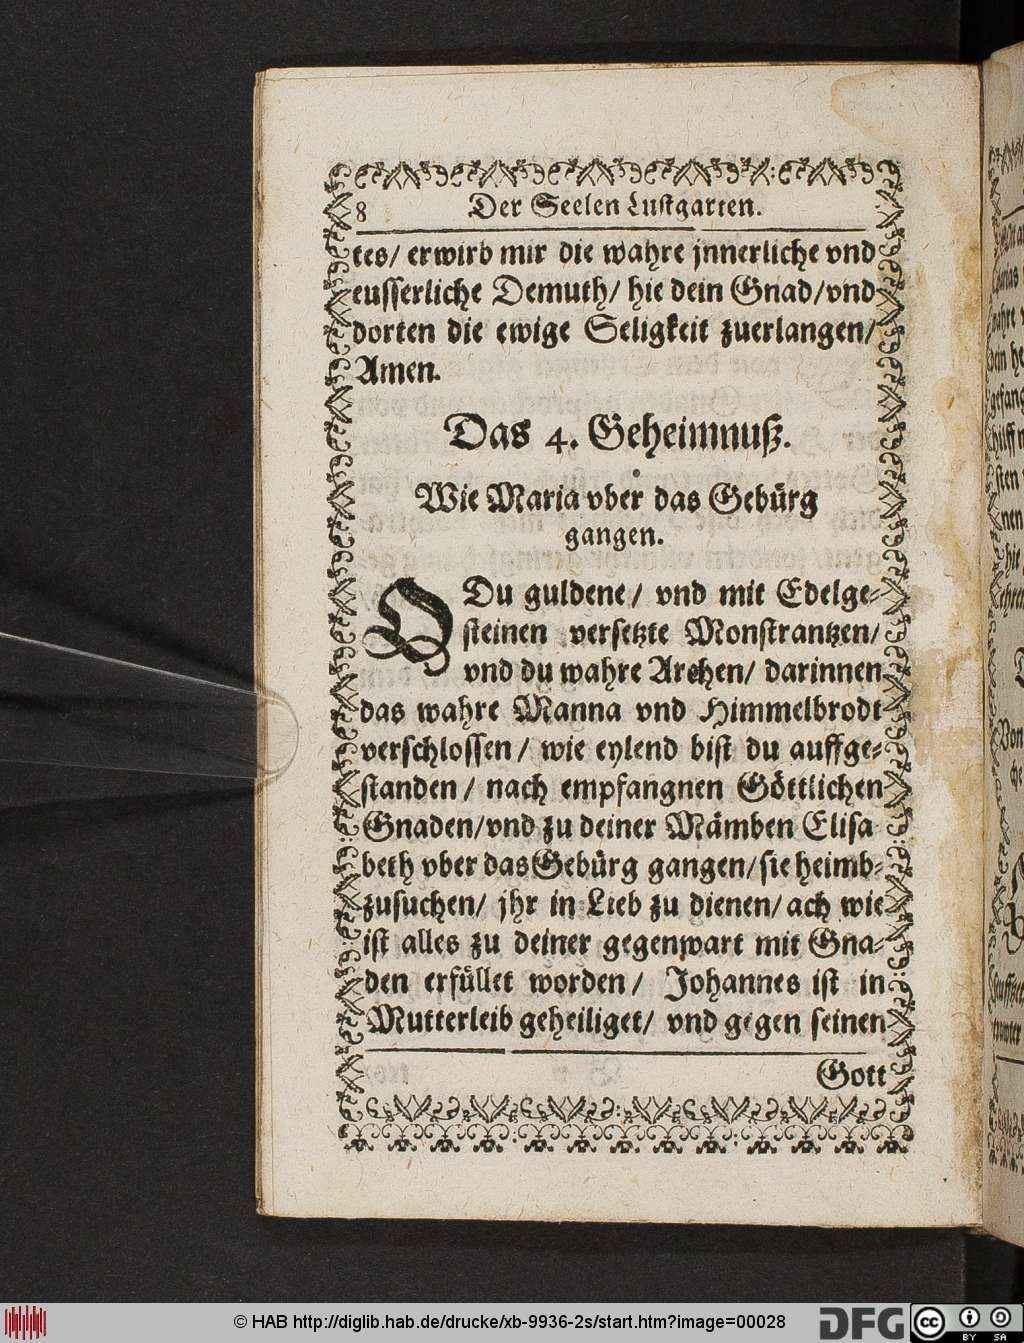 8 Der Seelen Lustgarten.
tes/ erwirb mir die wahre jnnerliche vnd
eusserliche Demuth/ hie dein Gnad/vnd
dorten die ewige Seligkeit zuerlangen/
Amen.
Das 4. Geheimnuß.
Wie Maria vber das Gebürg
gangen.
O Du guldene/ vnd mit Edelge-
steinen versetzte Monstrantzen/
vnd du wahre Archen/ darinnen
das wahre Manna vnd Himmelbrodt
verschlossen/ wie eylend bist du auffge-
standen/ nach empfangnen Göttlichen
Gnaden/vnd zu deiner Mämben Elisa
beth vber das Gebürg gangen/sie heimb-
zusuchen/ jhr in Lieb zu dienen/ ach wie
ist alles zu deiner gegenwart mit Gna-
den erfüllet worden/ Johannes ist in
Mutterleib geheiliget/ vnd gegen seinen
Gott
© HAB http://diglib.hab.de/drucke/xb-9936-2s/start.htm?image=00028
DFG
cc BY SA